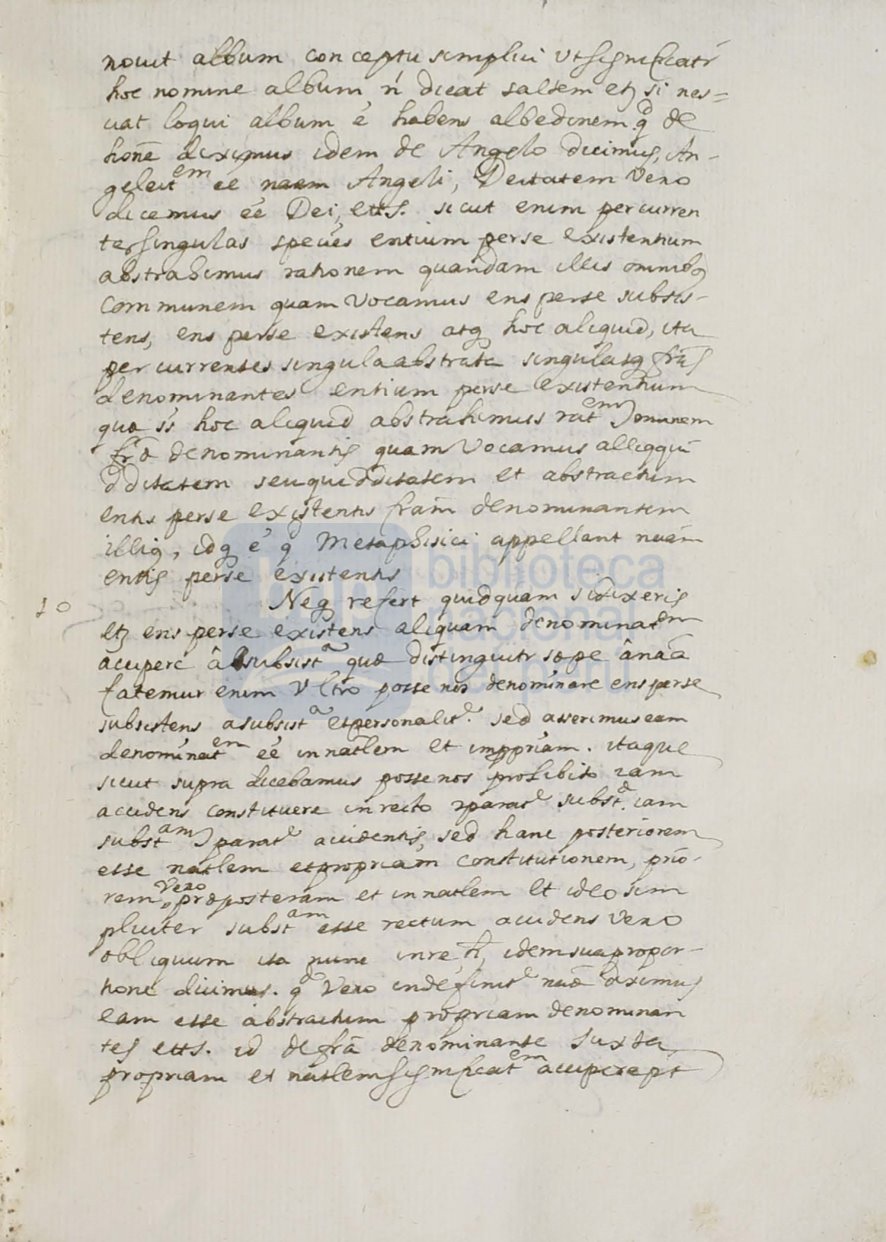 nouit album conceptu simplici ut significatr
hoc nomine album ń dicat saltem etȝ si nes=
ciat loqui album é habens albedinem q̃ de
hoñe diximus idem de Angelo dicimus, An-
geleitem eé naam Angeli, Deitatem Vero
dicemus eé Dei, etts. sicut enim percurren
tes singulas species entium perse existentium
abstrahimus rationem quandam illis omnibȝ
communem quam Vocamus ens perse subsis-
tens, ens perse existens atqȝ hoc aliquid, ita
percurrentes singula abstracta singulasqȝ
denominantes entium perse existentium
quæ ss hoc aliquid abstrahimus ratem Jomunem
denominantis quam Vocamus
dditatem seu quidditatem et abstractum
entis perse existentis fram denominantem
illiȝ, idqȝ é q̃ Metaphisici appellant naám
entis perse existentis
10 Neqȝ refert quidquam si dixeris
etȝ ens perse existens aliquam denominatem
accipere â subsista quæ distinguitr sæpe ânaã
fatemur enim Vltro posse nos denominare ens perse
subsistens a subsista et personalite. sed asserimus eam
denominatem eé innatlem et impṕriam. itaque
sicut supra dicebamus posse nos prohibito iam
accidens constituere in recto subste. iam
substam Jparate accidentis, sed hanc posteriorem
esse natlem et propriam constitutionem, prio-
rem Vero præposteram et innatlem et ideo sim
pliciter substam esse rectum accidens Vero
obliquum ita nunc inre, idem sua propor-
tione dicimus. qa Vero indefinite naæ diximus
eam esse abstractum propriam denominan
tes etts. id de frã denominante Juxta
propriam et natlem significatem accipere pt